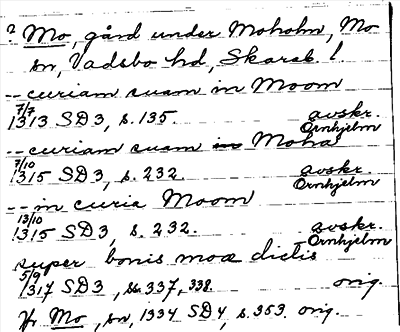 ? Mo, gård under Moholm, Mo
sn, Vadsbo hd, Skarab. l.
-- curiam suam in Moom
7/7
1313 SD 3, s. 135. avskr.
Örnhjelm
-- curiam suam in Moha
7/10
1315 SD 3, s. 232. avskr.
Örnhjelm
-- in curia Moom
13/10
1315 SD 3, s. 232. avskr.
Örnhjelm
super bonis moæ dictis
5/9
1317 SD 3, s. 337, 338. orig.
Jr Mo, sn, 1334 SD 4, s. 353. orig.